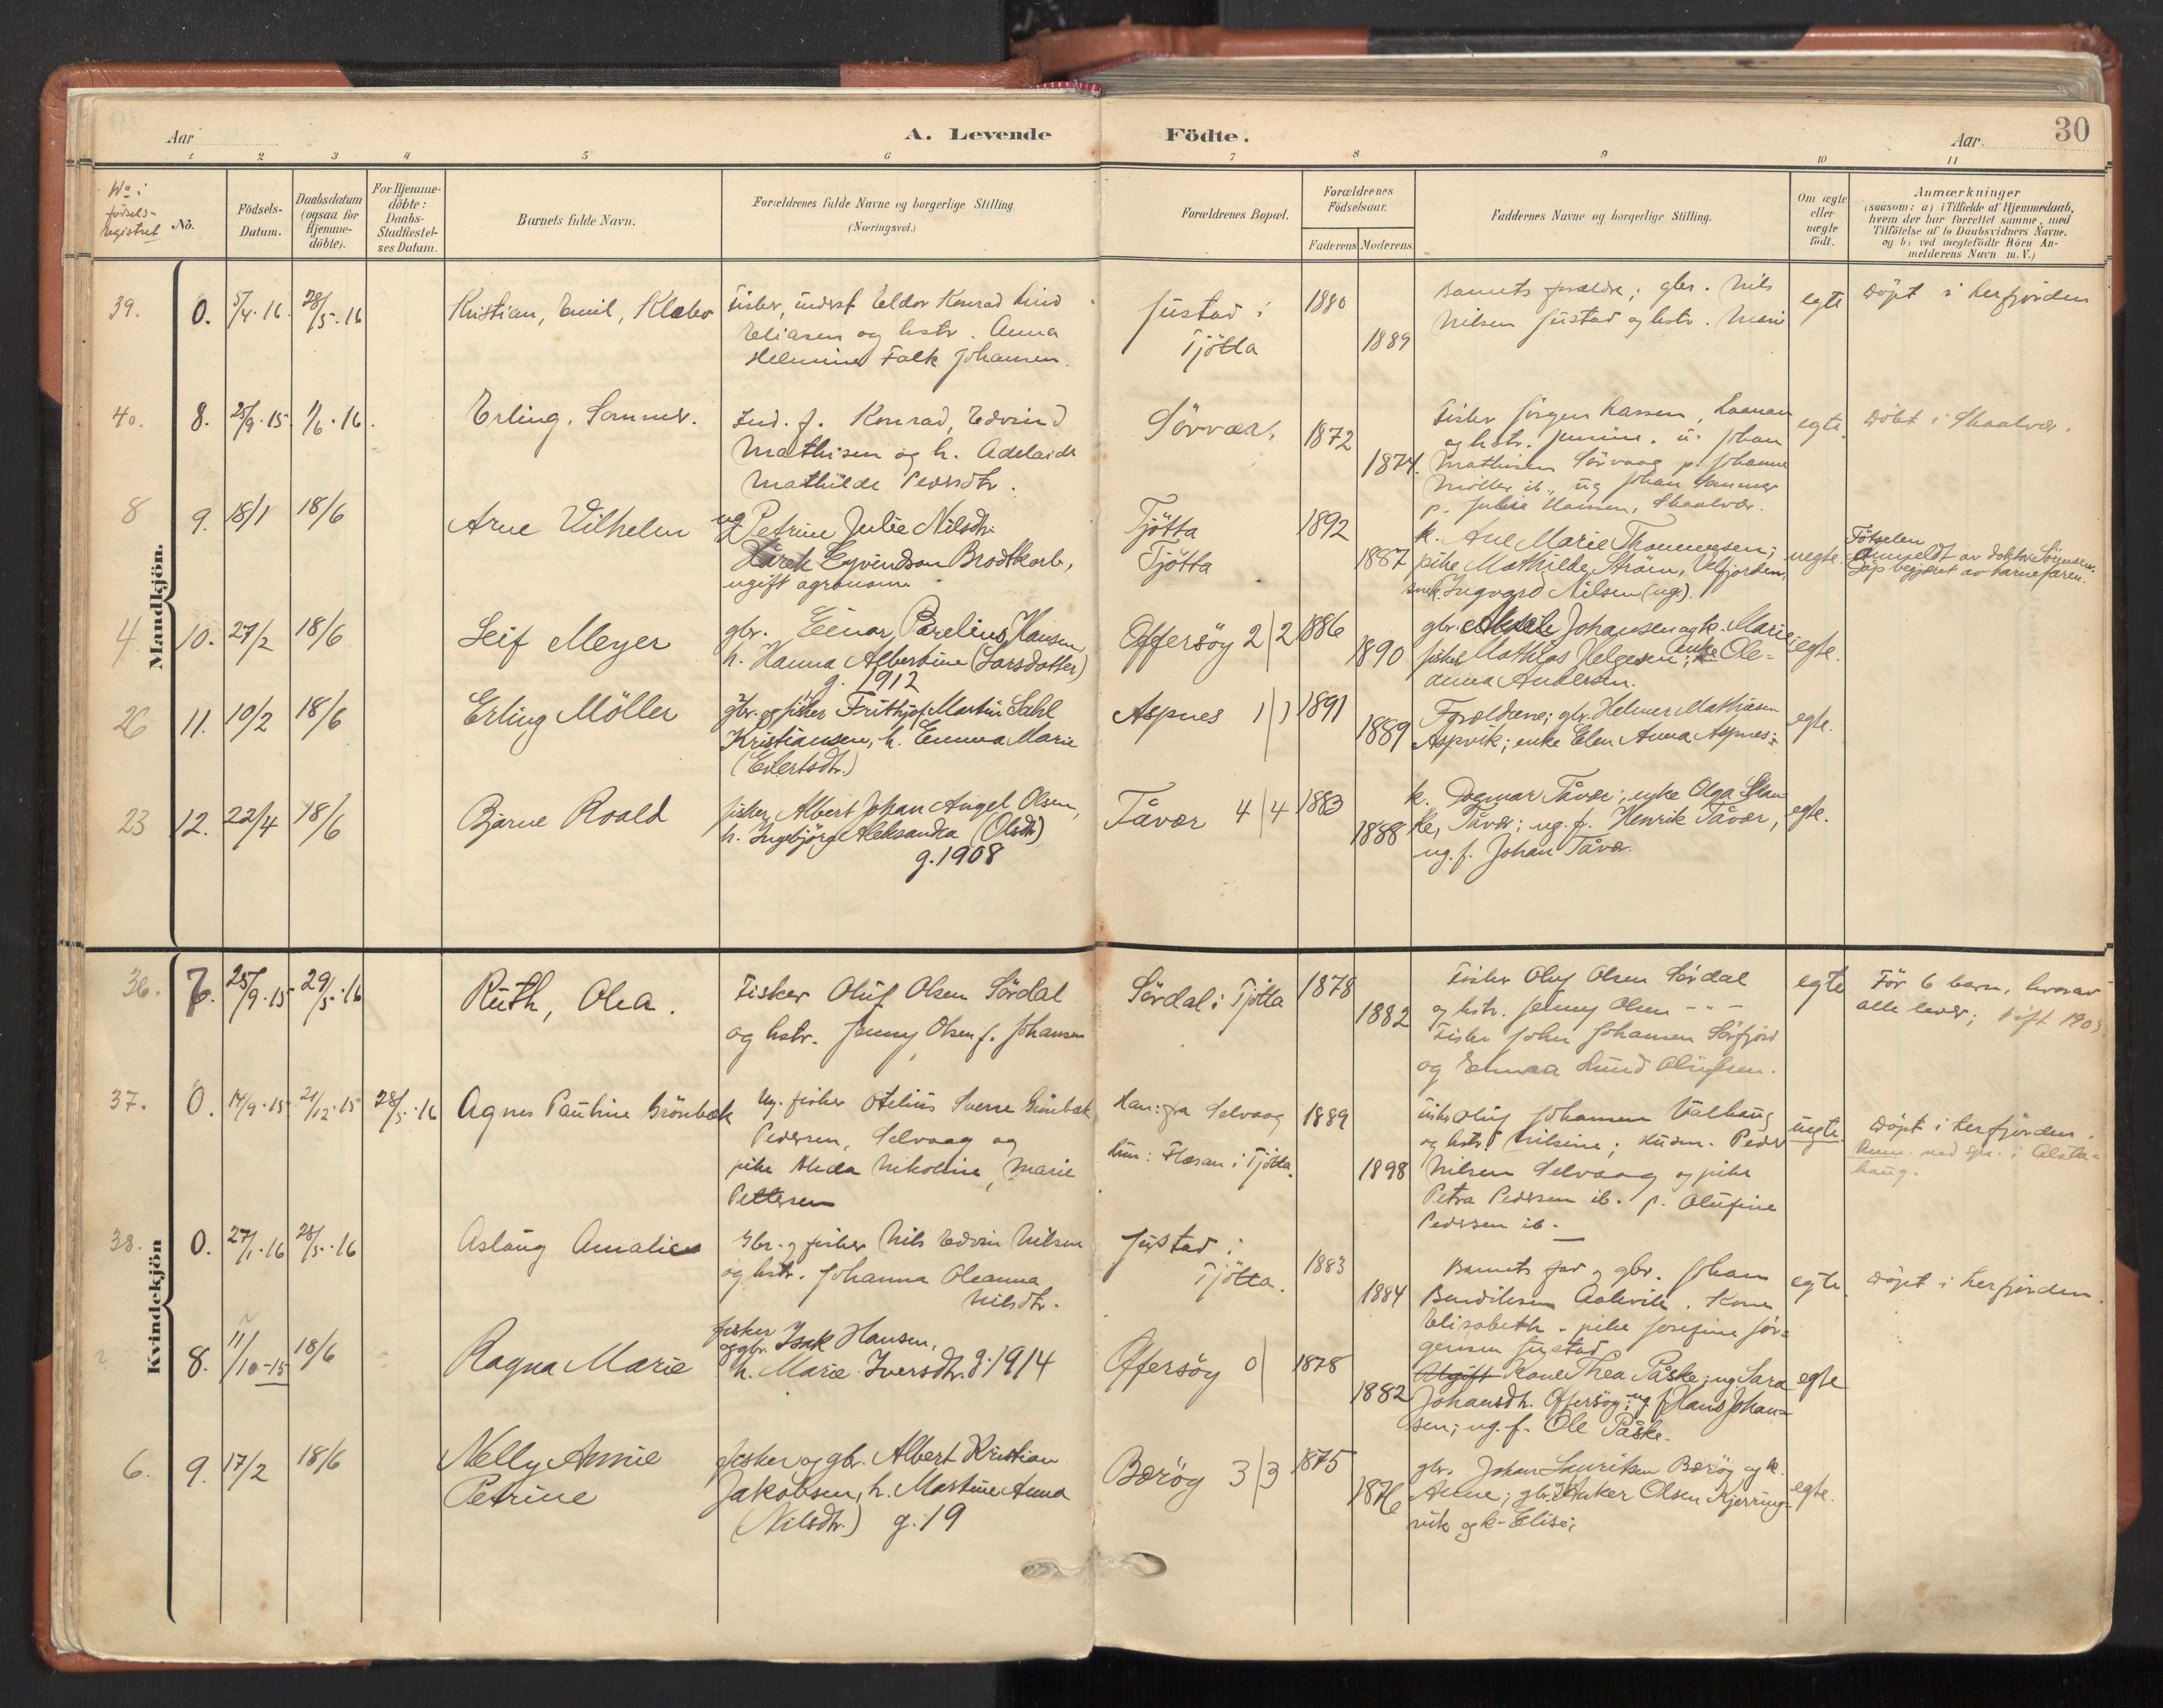 Aar
A. Levende
Födte.
Aar.
30
1 2 3 4 5 6 7 8 9 10 11
No i
födsels-
registret
No.
Födsels-
Datum.
Daabsdatum
(ogsaa for
Hjemme-
döbte).
For Hjemme-
döbte:
Daabs-
Stadfæstel-
ses Datum.
Barnets fulde Navn.
Forældrenes fulde Navne og borgerlige Stilling
(Næringsvei.)
Forældrenes Bopæl.
Forældrenes
Födselsaar.
Faderens Moderens
Faddernes Navne og borgerlige Stilling.
Om ægte
eller
uægte
födt.
Anmærkninger
(saasom: a) i Tilfælde af Hjemmedaab,
hvem der har forrettet samme, med
Tilföielse af to Daabsvidners Navne,
og b) ved uægtefödte Börn An-
melderens Navn m. V.)
Mandkjön.
39.
0.
5/4.16
28/5.16
Kristian, Emil,
Fisker, inderst Eldor Konrad Lind
Eliasen og hstr. Anna
Helmine Falk Johansen.
Justad i
Tjötta
1880
1889
Barnets forældre; gbr. Nils
Nilsen Justad og hstr. Mari
egte
Döpt i Lerfjorden
40.
8.
25/9.15
1/6.16
Erling, Sommer.
Ind. f. Konrad, Edvind
Mathisen og h. Adelaide
Mathilde Pedersdtr.
Sörvær.
1872
1874.
Fisker Jörgen Larsen,
og hstr. Jensine. u. Johan
Mathisen Sörvaag p. Johanne
Möller ib., ug Johan Sommer
p. Julie Hansen, Skaalvær.
egte.
Döbt i Skaalvær.
8
9.
18/1
18/6
Arne Vilhelm
ug Petrine Julie Nilsdtr.
Hårek Eyvindson Brodtkorb,
ugift agronom
Tjötta
Tjötta
1892
1887
k. Ane Marie Thommesen;
pike Mathilde Ström, Velfjorden,
snek. Ingvard Nilsen (ug).
uegte.
Fötselen
anmeldt av doktor Sörensen.
Dåp begjæret av barnefaren.
4
10.
27/2
18/6
Leif Meyer
gbr. Einar Parelius Hansen,
h. Hanna Albertine (Larsdatter)
g. 1912
Offersöy 2/2
1886
1890
gbr. Johansen og k. Marie;
fisker Mathias Helgesen; enke Ole-
anna Andersen.
egte.
26
11.
10/2
18/6
Erling Möller
gbr. og fisker Frithjof Martin Dahl
Kristiansen, h. Emma Marie
(Eilertsdtr.)
Aspnes 1/1
1891
1889
Forældrene; gbr. Helmer Mathisen
Aspvik; enke Elen Anna Aspnes.
egte.
23
12.
22/4
18/6
Bjarne Roald
fisker Albert Johan Angel Olsen,
h. Ingebjörg Aleksandra (Olsdtr)
g. 1908
Tåvær 4/4
1883
1888
k. Dagmar Tåvær; enke Olga
Tåvær; ug. f. Henrik Tåvær,
ug. f. Johan Tåvær.
egte.
Kvindekjön
36.
7.
25/9.15
29/5.16
Ruth, Olea.
Fisker Oluf Olsen Sördal
og hstr. Jenny Olsen f. Johansen
Sördal i Tjötta
1878
1882
Fisker Oluf Olsen Sördal
og hstr. Jenny Olsen - " -
Fisker John Johansen Sörfjord
og Emma Lund Olufsen.
egte
För 6 barn, hvorav
alle lever; gift 1903
37.
0.
14/9.15
21/12.15
28/5.16
Agnes Pauline Grönbæk
Ug. fisker Otelius Sverre Grönbæk
Pedersen, Selvaag og
pike Alida Nikoline, Marie
Pettersen
Han: fra Selvaag
Hun: Flæsan i Tjötta.
1889
1898
Fisker Oluf Johansen Valhaug
og hstr. Nilsine; Husm. Peder
Nilsen Selvaag og pike
Petra Pedersen ib. p. Olufine
Pedersen ib. -
uegte.
Döpt i Lerfjorden.
Anm. ved spr. i Alsta-
haug.
38.
0.
27/1.16
28/5.16
Aslaug Amalie
Gbr. og fisker Nils Edvin Nilsen
og hstr. Johanna Oleanna
Nilsdtr.
Justad i
Tjötta.
1883
1884
Barnets far og gbr. Johan
Bendiksen Aakvik. Kone
Elisabeth - pike Josefine Jör-
gensen Justad
egte.
Döpt i Lerfjorden.
?
8.
11/10-15
18/6
Ragna Marie
fisker
og gbr. Isak Hansen,
h. Marie Iversdtr. g. 1914
Offersöy 0/
1878
1882
Ugift Kone Thea Påske; ug Sara
Johansdtr. Offersöy; ug. f. Hans Johan-
sen; ug. f. Ole Påske.
egte
6.
9.
17/2
18/6
Nelly Annie
Petrine
fisker og gbr. Albert Kristian
Jakobsen, h. Martine Anna
(Nilsdtr.) g. 19
Bæröy 3/3
1875
1876
gbr. Johan Lauritsen Bæröy og k.
Anne; gbr. Haker Olsen Kjerring-
vik og k. Elise;
egte.